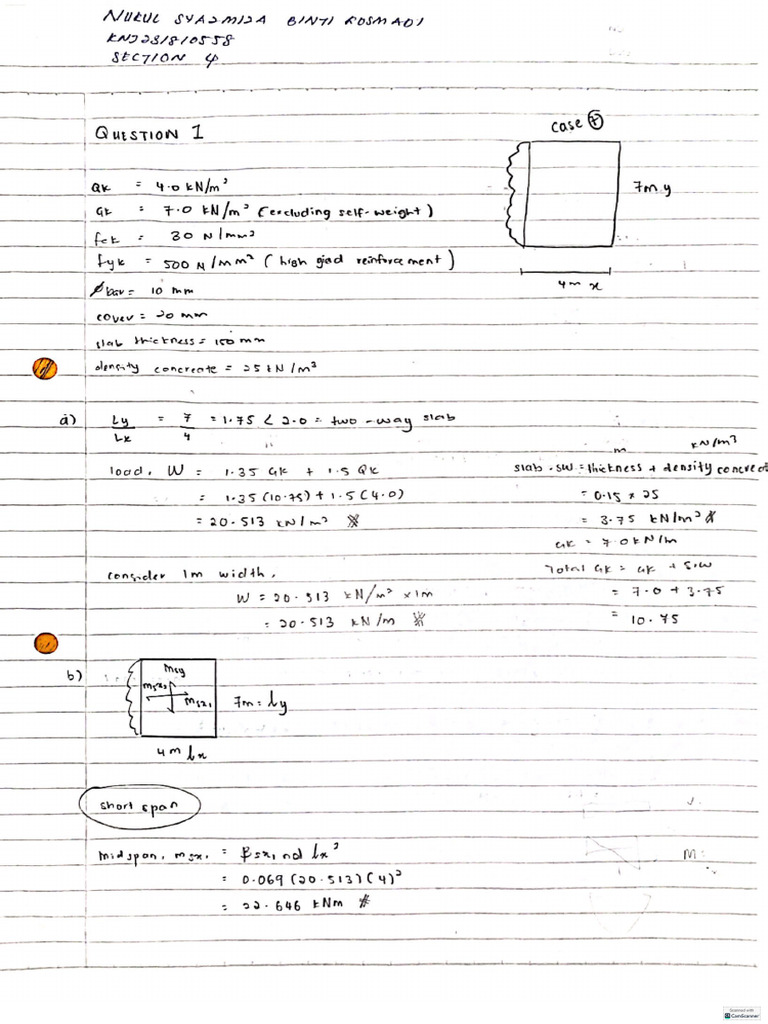 NURUL SYAZMIZA BINTI ROSMADI
KNJ231810558
SECTION 4
QUESTION 1
case 7
Qk = 4.0 kN/m²
Gk = 7.0 kN/m² (excluding self-weight)
7m y
fck = 30 N/mm²
fyk = 500 N/mm² (high grad reinforcement)
4m x
φbar = 10 mm
cover = 20 mm
slab thickness = 150 mm
density concreate = 25 kN/m³
a) Ly/Lx = 7/4 = 1.75 < 2.0 = two-way slab
m kN/m³
load, W = 1.35 Gk + 1.5 Qk
slab. sw = thickness + density concreat
= 1.35 (10.75) + 1.5 (4.0)
= 0.15 x 25
= 20.513 kN/m²
= 3.75 kN/m²
Gk = 7.0 kN/m
consider 1m width,
Total Gk = Gk + s.w
W = 20.513 kN/m² x 1m
= 7.0 + 3.75
= 20.513 kN/m
= 10.75
b)
msy
msx2
msx1
7m = ly
4m lx
short span
midspan, msx1 = βsx1 nd lx²
M:
= 0.069 (20.513) (4)²
= 22.646 kNm
Scanned with
CamScanner